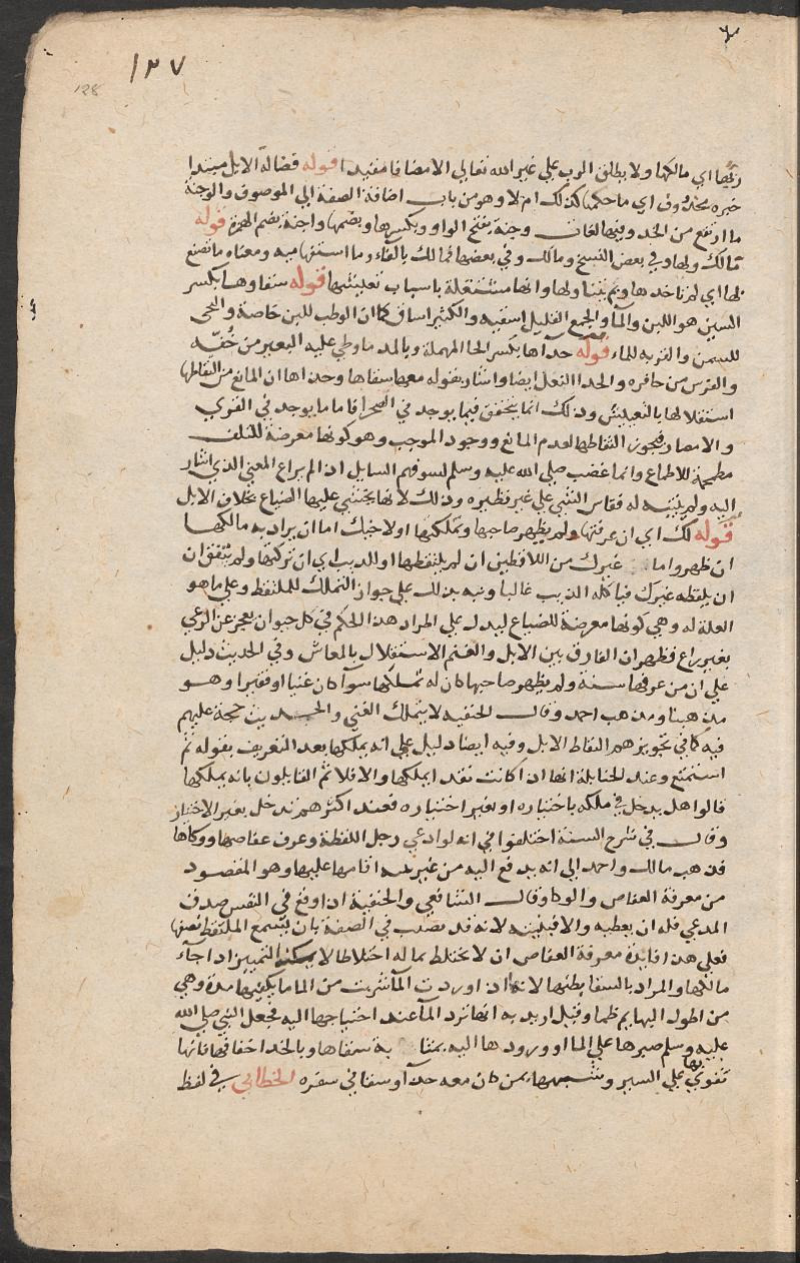 ١٢٧
128
ربها اي مالكها ولا يطلق الرب علي غير الله تعالي الا مضافا مقيدا قوله فضالة الابل مبتدا
خبره محذوف اي ما حكمها كذلك ام لا وهو من باب اضافة الصفة الي الموصوف والوجنة
ما ارتفع من الخد وفيها لغات وجنة بفتح الواو وبكسرها وبضمها واجنة بضم الهمزة قوله
فمالك ولها وفي بعض النسخ ومالك وفي بعضها فمالك بالفاء وما استفهامية ومعناه ما تصنع
بها اي لم تاخذها ولم تتناولها وانها مستقلة باسباب تعيشها قوله سقاوها بكسر
السين هو اللبن والماء والجمع القليل اسقية والكثير اساق كما ان الوطب للبن خاصة والنحي
للسمن والقربة للماء قوله حذاها بكسر الحا المهملة وبالمد ما وطي عليه البعير من خفه
والفرس من حافره والحذا النعل ايضا واشار بقوله معها سقاها وحذاها ان المانع من التقاطها
استقلالها بالتعيش وذلك انما يتحقق فيما يوجد في الصحرا فاما ما يوجد في القري
والامصار فيجوز التقاطها لعدم المانع ووجود الموجب وهو كونها معرضة للتلف
مطمحة للاطماع وانما غضب صلي الله عليه وسلم لسو فهم السايل اذ لم يراع المعني الذي اشار
اليه ولم يتنبه له فقاس الشي علي غير نظيره وذلك لانها يخشي عليها الضياع بخلاف الابل
قوله لك اي ان عرفتها ولم يظهر صاحبها وتملكتها اولاخيك اما ان يراد به مالكها
ان ظهر واما غيرك من اللاقطين ان لم يلتقطها او الذيب اي ان تركتها ولم يتفق ان
ان يلتقطه غيرك فياكله الذيب غالبا ونبه بذلك علي جواز التملك للملتقط وعلي ما هو
العلة له وهي كونها معرضة للضياع ليدل علي المراد هذا الحكم في كل حيوان يعجز عن الرعي
بغير راع فظهر ان الفارق بين الابل والغنم الاستقلال بالمعاش وفي الحديث دليل
علي ان من عرفها سنة ولم يظهر صاحبها كان له تملكها سوا كان غنيا او فقيرا وهو
مذهبنا ومذهب احمد وقال الحنفية لا يتملك الغني والحديث حجة عليهم
فيه كما في تجويزهم التقاط الابل وفيه ايضا دليل علي انه يملكها بعد التعريف بقوله ثم
استمتع وعند الحنابلة انها اذا كانت نقدا يملكها والا فلا ثم القايلون بانه يملكها
قالوا هل يدخل في ملكه باختياره او بغير اختياره فعند اكثرهم تدخل بغير الاختيار
وقال في شرح السنة اختلفوا في انه لو ادعي رجل اللقطة وعرف عفاصها ووكاها
فذهب مالك واحمد الي انه يدفع اليه من غير بينة اقامها عليها وهو المقصود
من معرفة العفاص والوكا وقال الشافعي والحنفية اذا وقع في النفس صدق
المدعي فله ان يعطيه والا فببينة لانه قد يصيب في الصفة بان يسمع الملتقط يصفها
فعلي هذا فايدة معرفة العفاص ان لا يختلط بماله اختلاطا لا يمكنه التمييز اذا جاء
مالكها والمراد بالسقا بطنها لانها اذا وردت الماء شربت من الما ما يكفيها مدة وهي
من اطول البهايم ظما وقيل اريد به انها ترد الماء عند احتياجها اليه فجعل النبي صلي الله
عليه وسلم صبرها علي الما او ورودها اليه بمثابة سقاها وبالحذا اخفافها فانها
تقوي بها علي السير وشبهها بمن كان معه حذاء وسقا في سفره الخطابي في لفظ